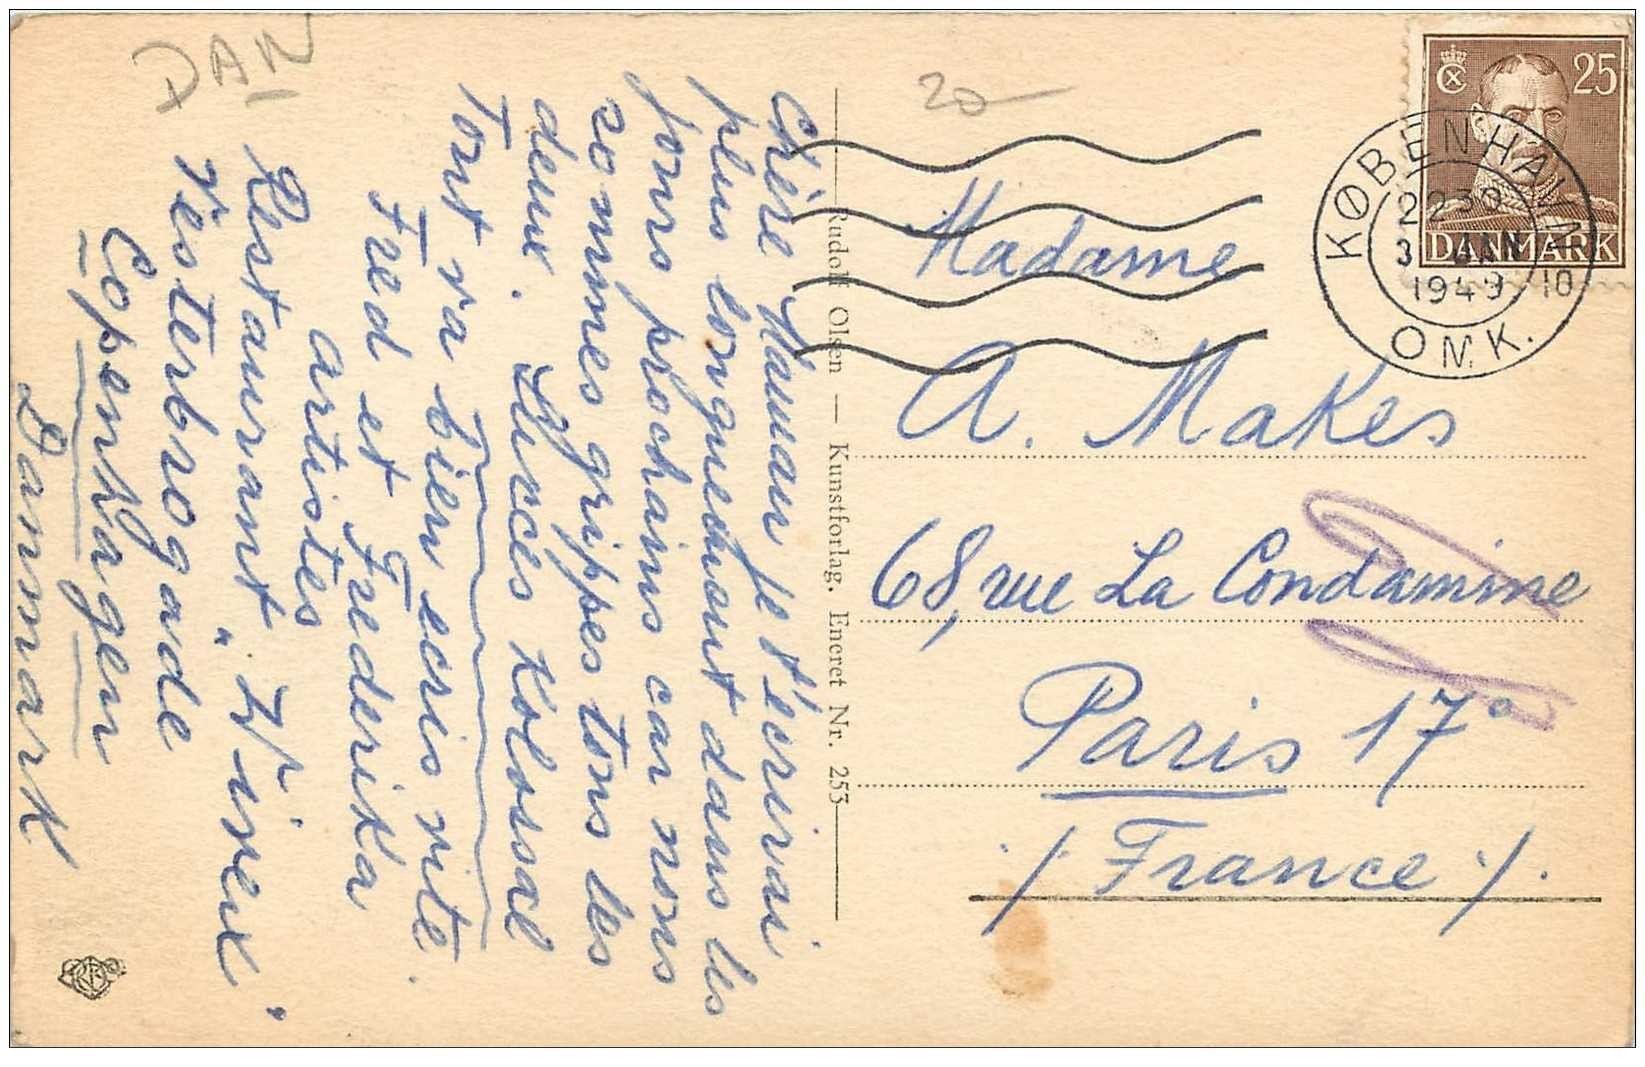 DAN
20
25
DANMARK
KØBENHAVN
2230
3 JAN
1949 10
OMK.
Chère Maman je t'écrirai
plus longuement dans les
jours prochains car nous
sommes grippés tous les
deux. Succès Kolossal
Tout va bien ecris vite.
Fred et Frederika
artistes
Restaurant "Wivex"
Vesterbrogade
Copenhagen
Danmark
Rudolf Olsen — Kunstforlag. Eneret Nr. 253
Madame
A. Makes
68, rue La Condamine
Paris 17e
/ France /.